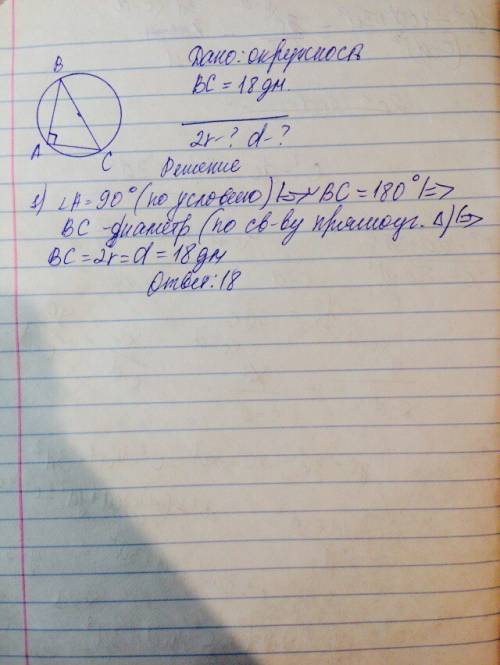 B
A
C
Дано: окружность
BC = 18 дм
2r-? d-?
Решение
1) ∠A = 90° (по условию) |=> ◡BC = 180° |=>
BC - диаметр (по св-ву прямоуг. Δ) |=>
BC = 2r = d = 18 дм
Ответ: 18